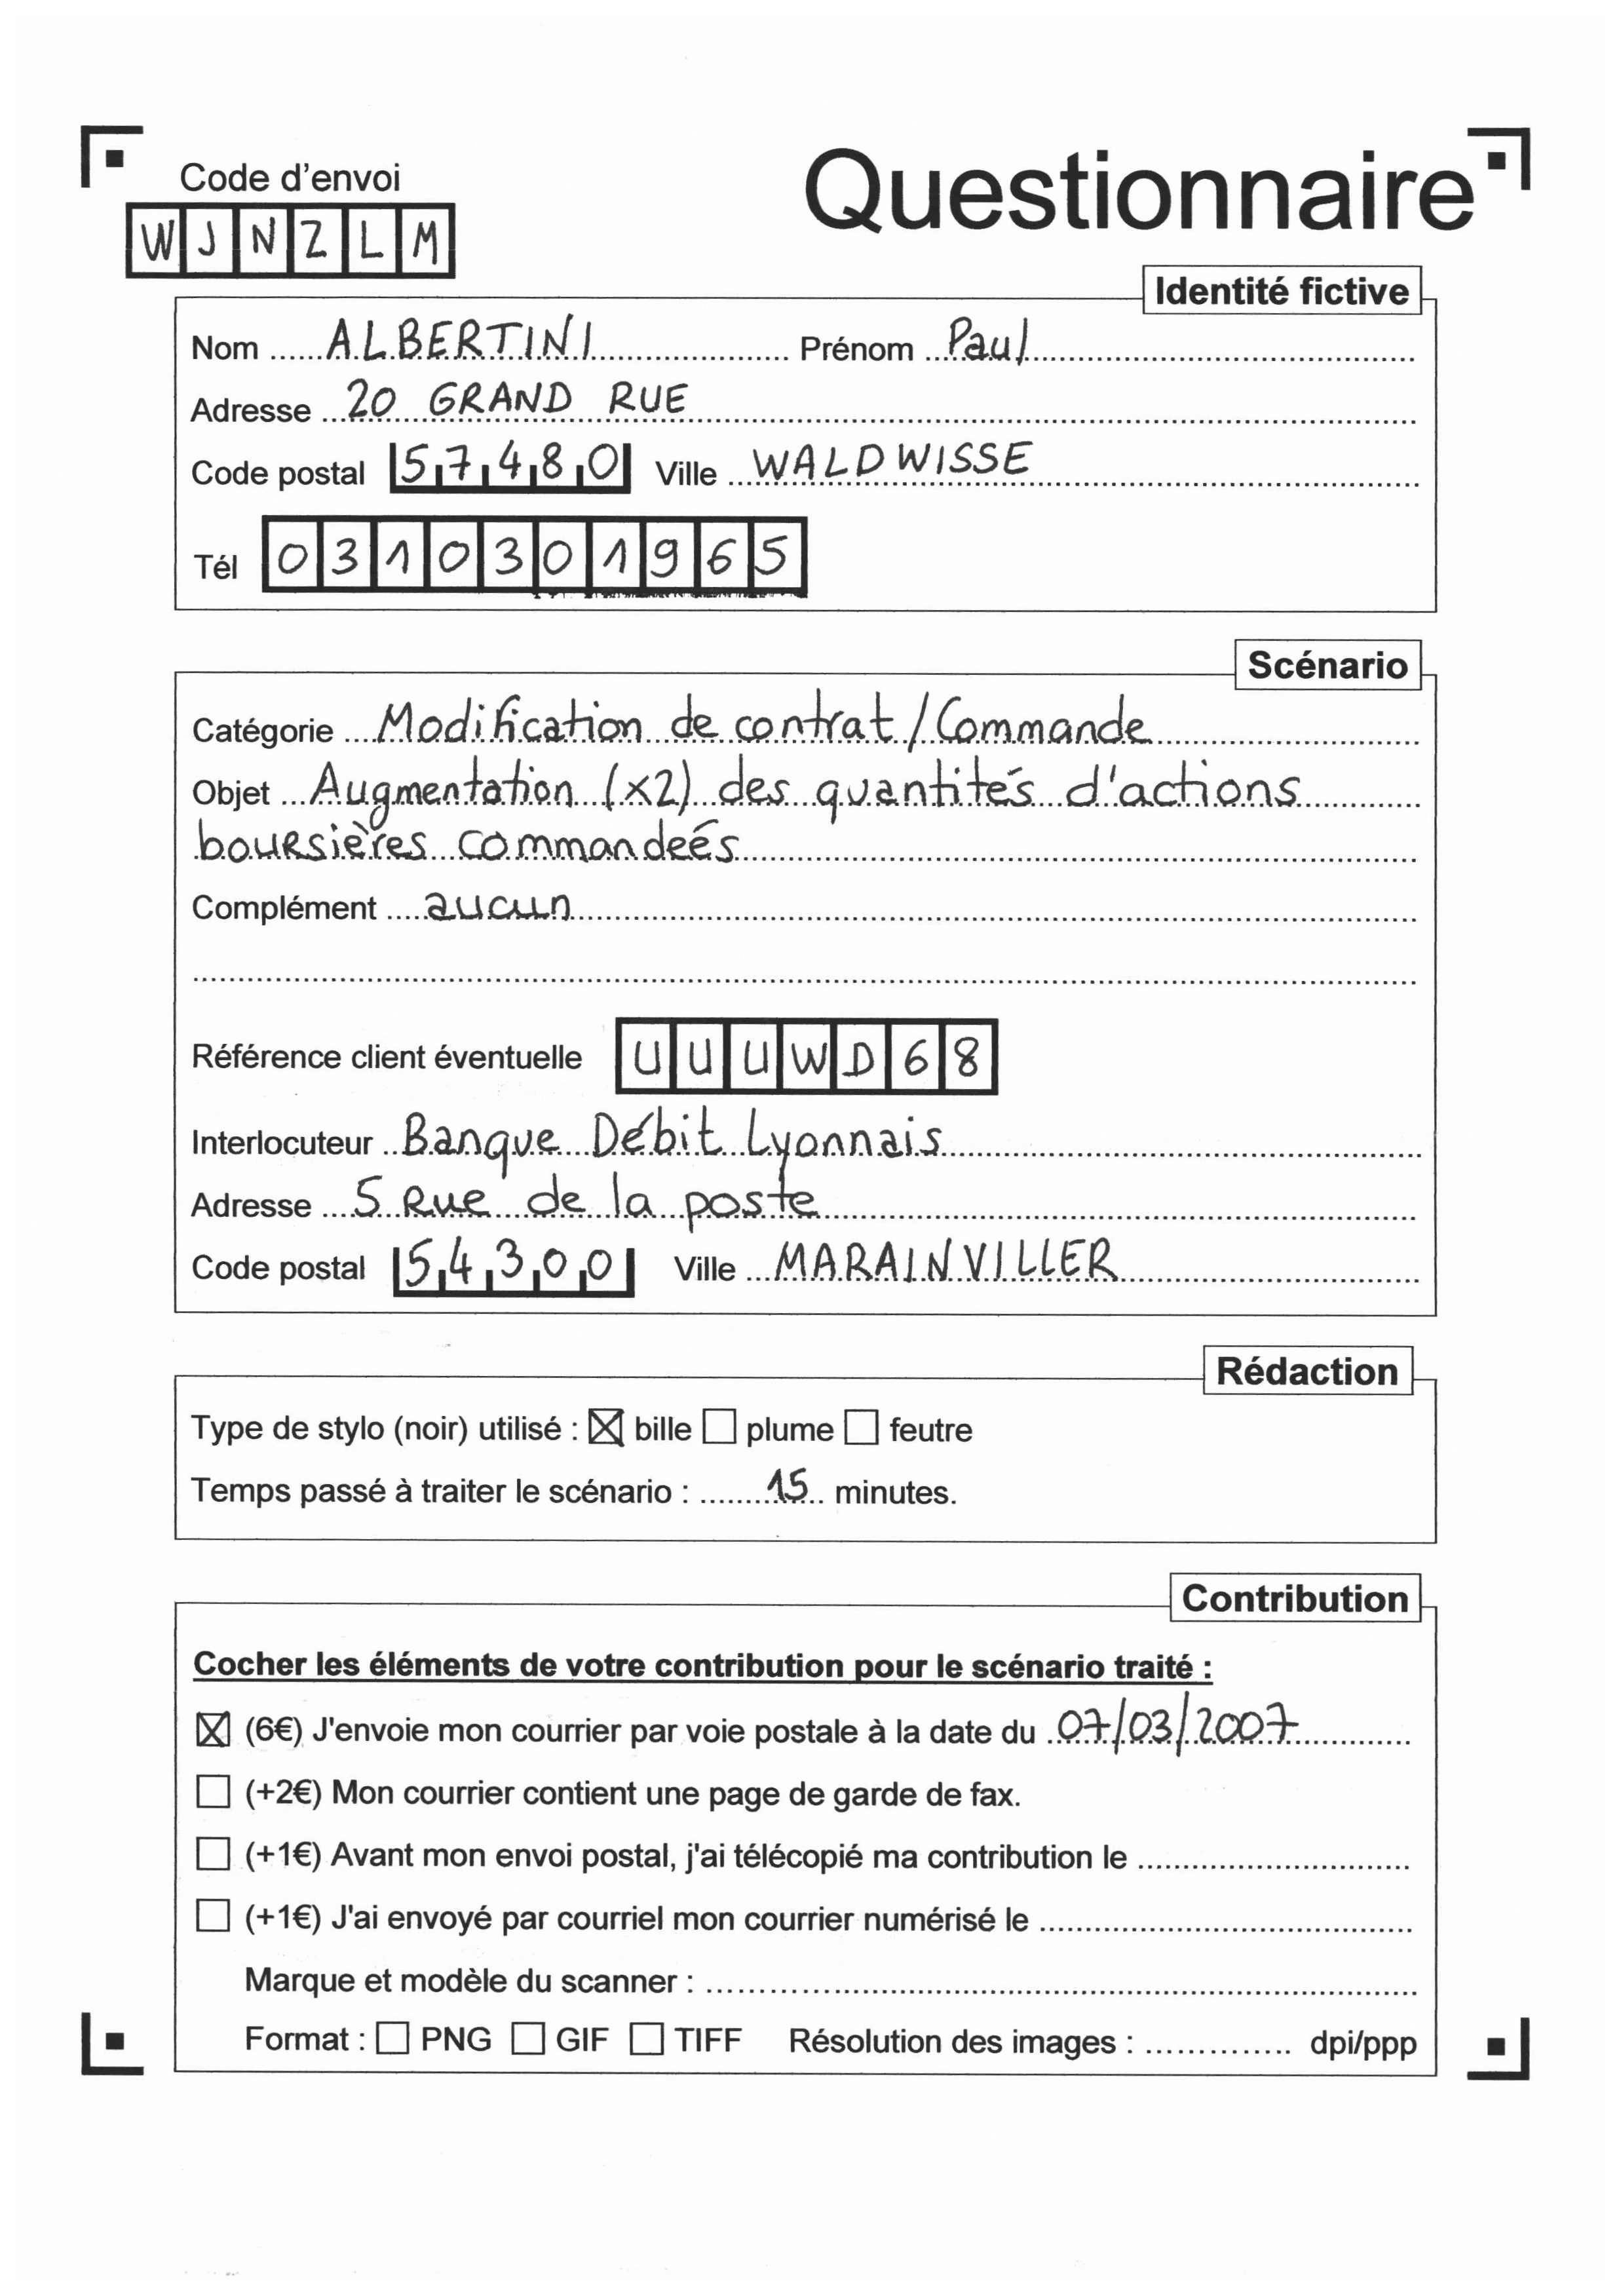 Code d'envoi
Questionnaire
WJNZLM
Identité fictive
Nom ALBERTINI Prénom Paul
Adresse 20 GRAND RUE
Code postal 57480 Ville WALDWISSE
Tél 0310301965
Scénario
Catégorie Modification de contrat / Commande
Objet Augmentation (x2) des quantités d'actions
boursières commandeés
Complément aucun
Référence client éventuelle UUUWD68
Interlocuteur Banque Débit Lyonnais
Adresse 5 Rue de la poste
Code postal 54300 Ville MARAINVILLER
Rédaction
Type de stylo (noir) utilisé : ☒ bille ☐ plume ☐ feutre
Temps passé à traiter le scénario : 15 minutes.
Contribution
Cocher les éléments de votre contribution pour le scénario traité :
☒ (6€) J'envoie mon courrier par voie postale à la date du 07/03/2007
☐ (+2€) Mon courrier contient une page de garde de fax.
☐ (+1€) Avant mon envoi postal, j'ai télécopié ma contribution le
☐ (+1€) J'ai envoyé par courriel mon courrier numérisé le
Marque et modèle du scanner :
Format : ☐ PNG ☐ GIF ☐ TIFF Résolution des images : dpi/ppp